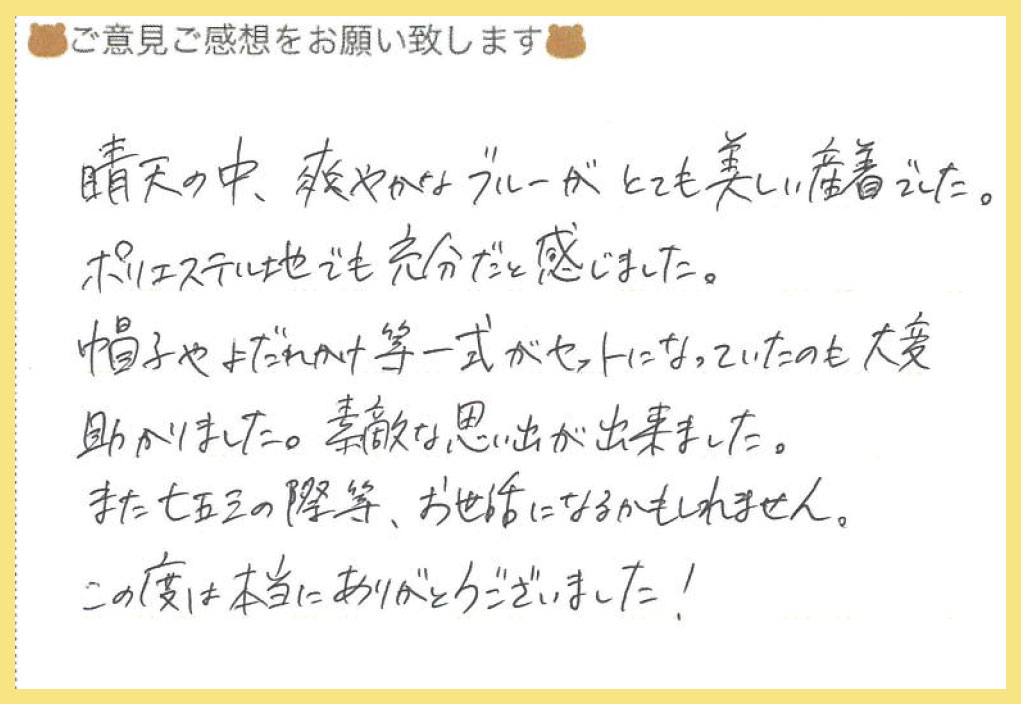 ご意見ご感想をお願い致します
晴天の中、爽やかなブルーがとても美しい産着でした。
ポリエステル地でも充分だと感じました。
帽子やよだれかけ等一式がセットになっていたのも大変
助かりました。素敵な思い出が出来ました。
また七五三の際等、お世話になるかもしれません。
この度は本当にありがとうございました!